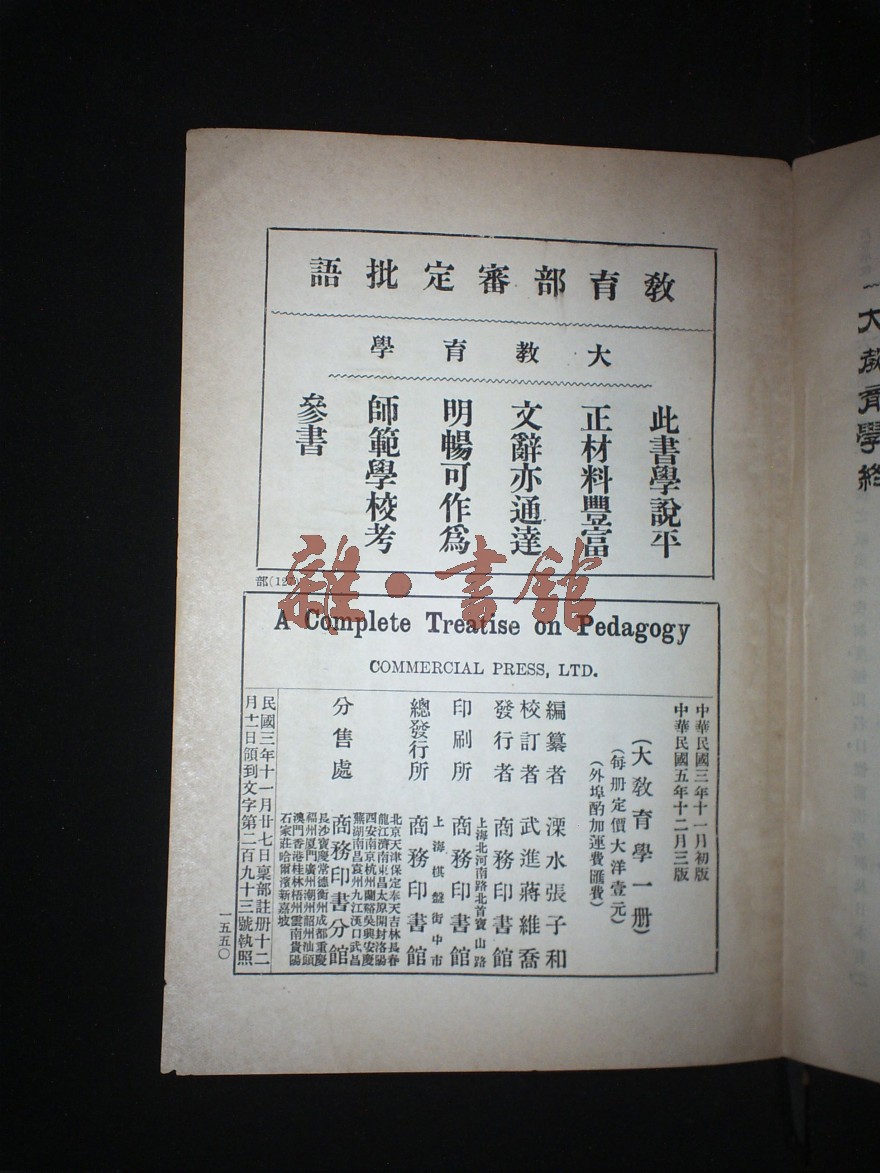 教育部審定批語
大教育學
此書學說平
正材料豐富
文辭亦通達
明暢可作爲
師範學校考
參書
部(12
雜·書館
A Complete Treatise on Pedagogy
COMMERCIAL PRESS, LTD.
中華民國三年十一月初版
中華民國五年十二月三版
(大教育學一册)
(每册定價大洋壹元)
(外埠酌加運費匯費)
編纂者 溧水張子和
校訂者 武進蔣維喬
發行者 商務印書館
上海北河南路北首寶山路
印刷所 商務印書館
上海棋盤街中市
總發行所 商務印書館
分售處 商務印書分館
北京天津保定奉天吉林長春
龍江濟南東昌太原開封洛陽
西安南京杭州蘭谿吳興安慶
蕪湖南昌袁州九江漢口武昌
長沙寶慶常德衡州成都重慶
福州厦門廣州潮州韶州汕頭
澳門香港桂林梧州雲南貴陽
石家莊哈爾濱新嘉坡
民國三年十一月廿七日稟部註册十二
月十二日領到文字第二百九十三號執照
一五五〇
大教育學終